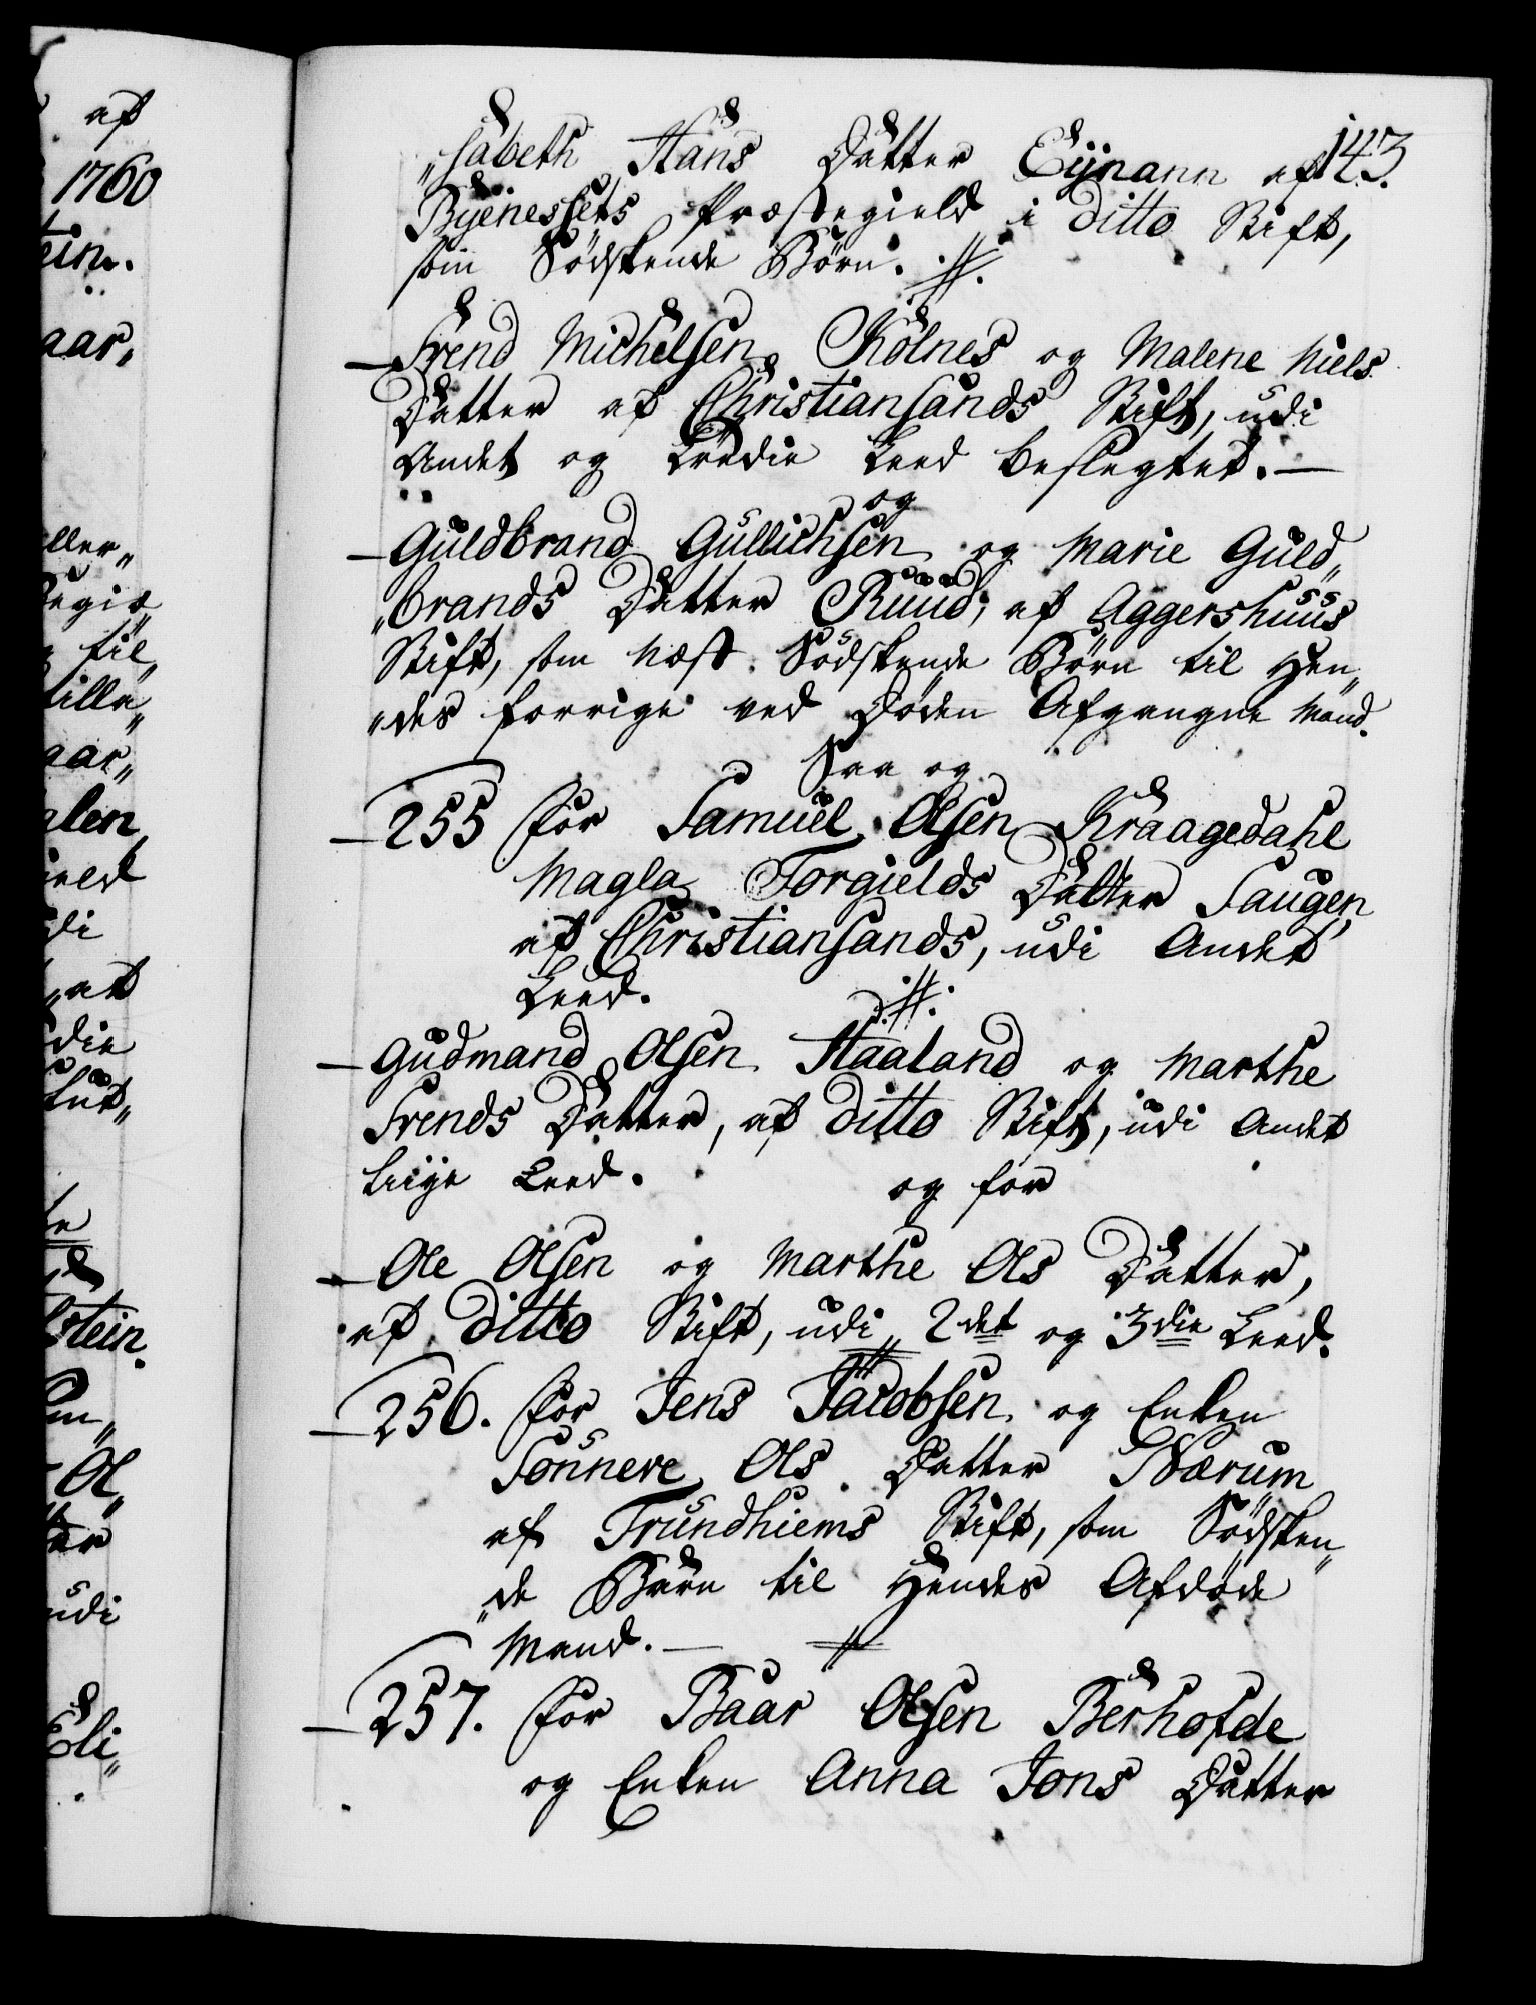 143.
„sabeth Hans Datter Eijnann af
Byenessets Præstegield i ditto Stift,
som Södskende Börn. ·//·
— Svend Michelsen Kolnes og Malene Niels
Datter af Christiansands Stift, udi
Andet og Tredie Leed beslegtet. —
og
— Guldbrand Gullichsen og Marie Guld„
„brands Datter Ruud, af Aggershuus
Stift, som Næst Södskende Börn til Hen„
„des forrige ved Döden Afgangne Mand.
Saa og
— 255 for Samuel Olsen Kraagedahl
Magla Torgields Datter Haugen,
af Christiansands, udi Andet
Leed. ·//·
— Gudmand Olsen Haaland og Marthe
Svends Datter, af ditto Stift, udi Andet
Liige Leed. og for
— Ole Olsen og Marthe Ols Datter,
af ditto Stift, udi 2det og 3die Leed.
— 256. for Jens Jacobsen og Enken
Sønnere Ols Datter Nærum
af Trundhiems Stift, som Södsken„
„de Börn til Hendes Afdöde
Mand. — //
— 257. for Baar Olsen Berhofde
og Enken Anna Jons Datter
af
1760
tein.
aar,
ller„
Regie„
til„
tilla„
aar„
alen
ield
di
at
die
stein.
Ol„
ter
udi
Eli„